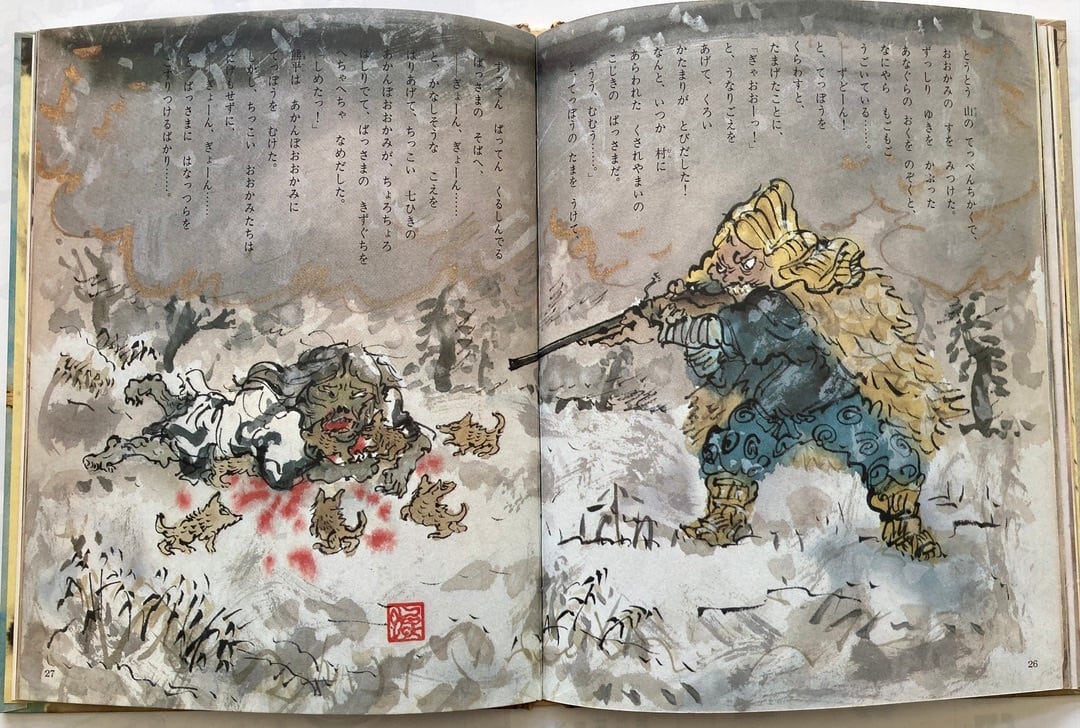 とうとう 山の てっぺんちかくで、
おおかみの すを みつけた。
ずっしり ゆきを かぶった
あなぐらの おくを のぞくと、
なにやら もこもこ
うごいている……。
ずどーん!
と、てっぽうを
くらわすと、
たまげたことに、
「ぎゃおおーっ!」
と、うなりごえを
あげて、くろい
かたまりが とびだした!
なんと、いつか 村に
あらわれた くされやまいの
こじきの ばっさまだ。
「うう、むむう……。」
と、てっぽうの たまを うけて、
すってん ばってん くるしんでる
ばっさまの そばへ、
ぎょーん、ぎょーん……
と、かなしそうな こえを
はりあげて、ちっこい 七ひきの
あかんぼおおかみが、ちょろちょろ
はしりでて、ばっさまの きずぐちを
ぺちゃぺちゃ なめだした。
「しめたっ!」
熊平は あかんぼおおかみに
てっぽうを むけた。
しかし、ちっこい おおかみたちは
にげもせずに、
ぎょーん、ぎょーん……
と、ばっさまに はなっつらを
こすりつけるばかり……。
26
27